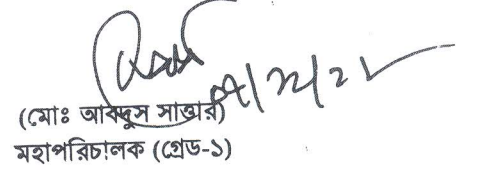 (মোঃ আব্দুস সাত্তার)
মহাপরিচালক (গ্রেড-১)